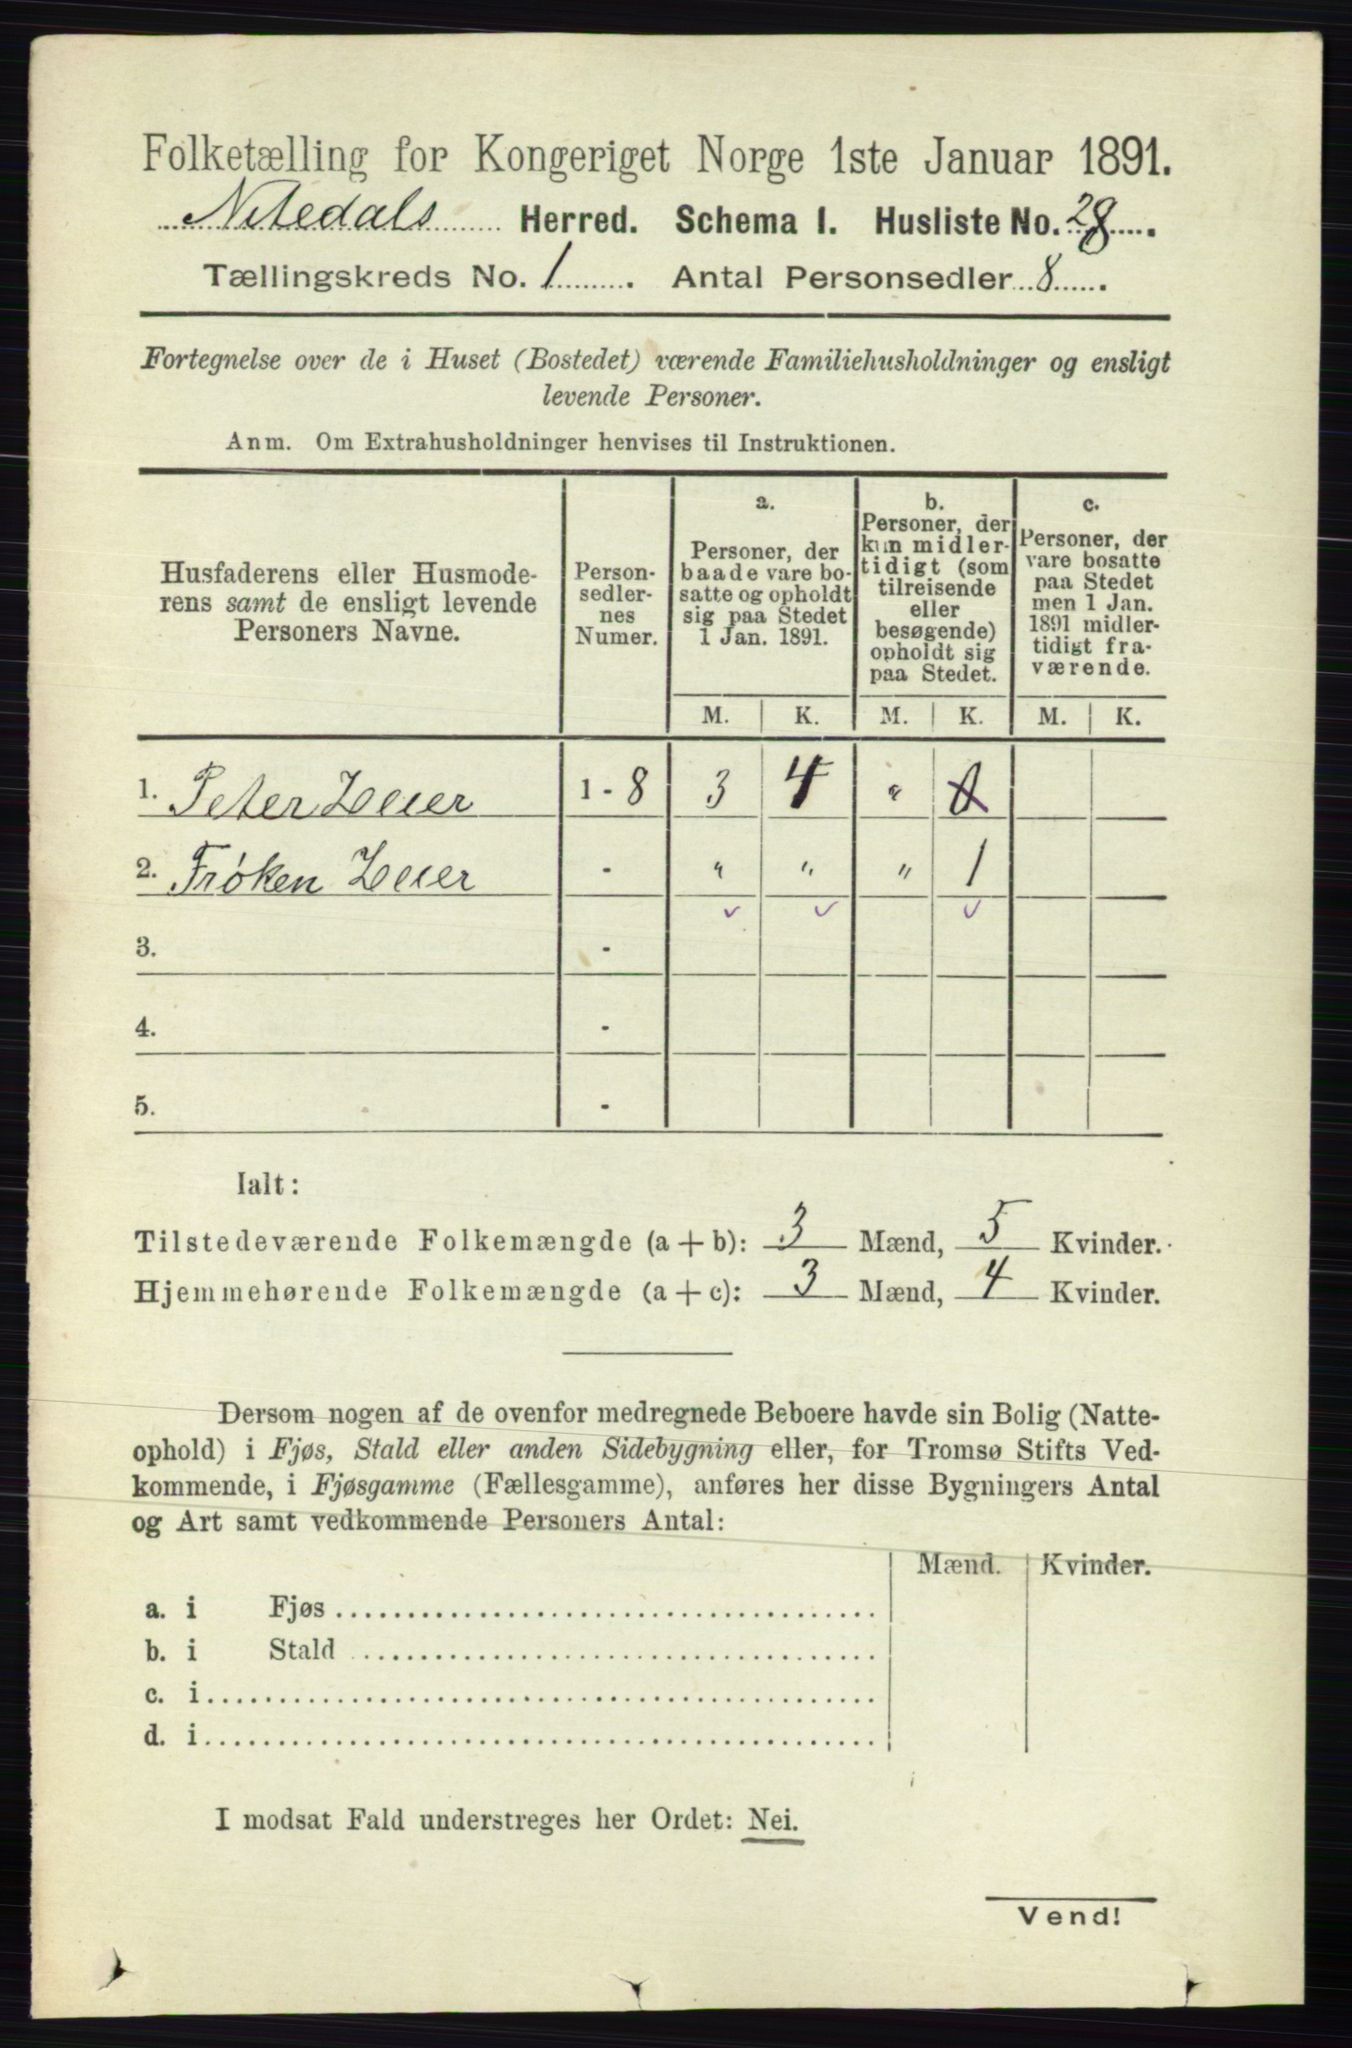 Folketælling for Kongeriget Norge 1ste Januar 1891.
Nitedals Herred. Schema I. Husliste No. 28.
Tællingskreds No. 1. Antal Personsedler 8.
Fortegnelse over de i Huset (Bostedet) værende Familiehusholdninger og ensligt
levende Personer.
Anm. Om Extrahusholdninger henvises til Instruktionen.
Husfaderens eller Husmode-
rens samt de ensligt levende
Personers Navne.
Person-
sedler-
nes
Numer.
a.
Personer, der
baade vare bo-
satte og opholdt
sig paa Stedet
1 Jan. 1891.
b.
Personer, der
kun midler-
tidigt (som
tilreisende
eller
besøgende)
opholdt sig
paa Stedet.
c.
Personer, der
vare bosatte
paa Stedet
men 1 Jan.
1891 midler-
tidigt fra-
værende.
M. K. M. K. M. K.
1. Peter 1 - 8 3 4 "
2. Frøken - " " " 1
3. -
4. -
5. -
Ialt:
Tilstedeværende Folkemængde (a + b): 3 Mænd, 5 Kvinder.
Hjemmehørende Folkemængde (a + c): 3 Mænd, 4 Kvinder.
Dersom nogen af de ovenfor medregnede Beboere havde sin Bolig (Natte-
ophold) i Fjøs, Stald eller anden Sidebygning eller, for Tromsø Stifts Ved-
kommende, i Fjøsgamme (Fællesgamme), anføres her disse Bygningers Antal
og Art samt vedkommende Personers Antal:
Mænd. Kvinder.
a. i Fjøs
b. i Stald
c. i
d. i
I modsat Fald understreges her Ordet: Nei.
Vend!